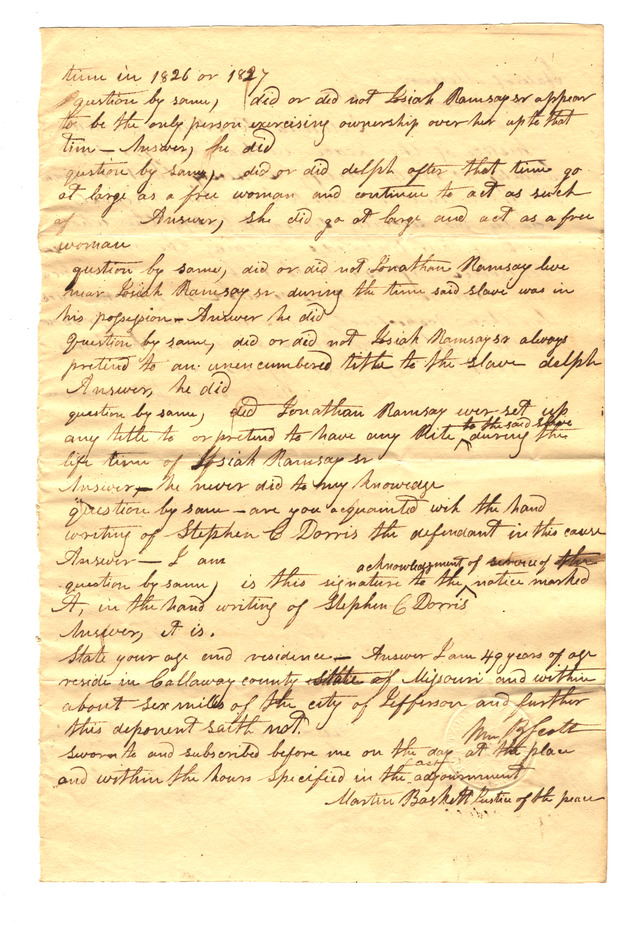 time in 1826 or 1827
question by same, did or did not Josiah Ramsay sr appear
to be the only person exercising ownership over her up to that
tim – Answer, he did
qustion by same, did or did delph after that time go
at large as a free woman and continue to act as such
Answer, she did go at large and act as a free
woman
qustion by same, did or did not Jonathan Ramsay live
near Josiah Ramsay sr during the time said slave was in
his possession – Answer he did
question by same, did or did not Josiah Ramsay sr always
pretend to an unencumbered title to the slave delph
Answer, he did
question by same, did Jonathan Ramsay ever set up
any title to or pretend to have any Rite to the said slave during the
life time of Josiah Ramsay sr
Answer, – he never did to my knowedge
question by same – are you acquainted with the hand
writing of Stephen C Dorris the defendant in this cause
Answer – I am
question by same, is this signature to the acknowledgment of service of the notice marked
A, in the hand writing of Stephen C Dorris
Answer, it is.
State your age and residence – Answer I am 49 years of age
reside in Callaway county state of Missouri and within
about six miles of the city of Jefferson and further
this deponent saith not.
Wm B Scott
sworn to and subscribed before me on the day at the place
and within the hours specified in the adjournment
Martin Baskett Justice of the peace